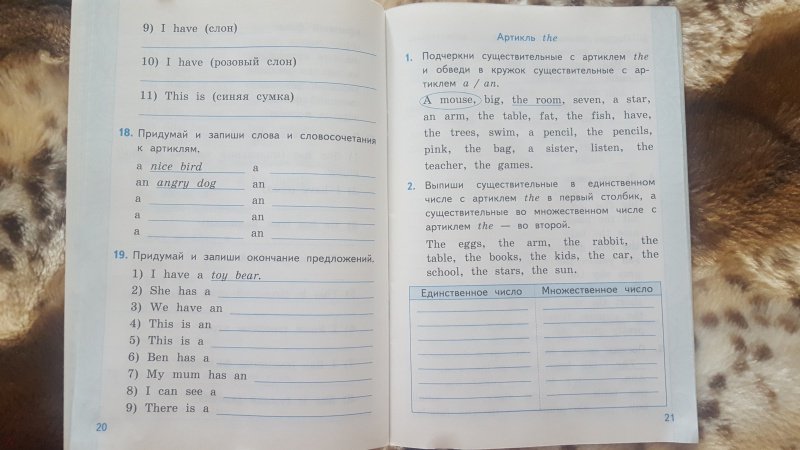 9) I have (слон)
10) I have (розовый слон)
11) This is (синяя сумка)
18. Придумай и запиши слова и словосочетания
к артиклям.
a nice bird a
an angry dog an
a an
a an
a an
19. Придумай и запиши окончание предложений.
1) I have a toy bear.
2) She has a
3) We have an
4) This is an
5) This is a
6) Ben has a
7) My mum has an
8) I can see a
9) There is a
20
Артикль the
1. Подчеркни существительные с артиклем the
и обведи в кружок существительные с ар-
тиклем a / an.
A mouse, big, the room, seven, a star,
an arm, the table, fat, the fish, have,
the trees, swim, a pencil, the pencils,
pink, the bag, a sister, listen, the
teacher, the games.
2. Выпиши существительные в единственном
числе с артиклем the в первый столбик, а
существительные во множественном числе с
артиклем the — во второй.
The eggs, the arm, the rabbit, the
table, the books, the kids, the car, the
school, the stars, the sun.
Единственное число Множественное число
21